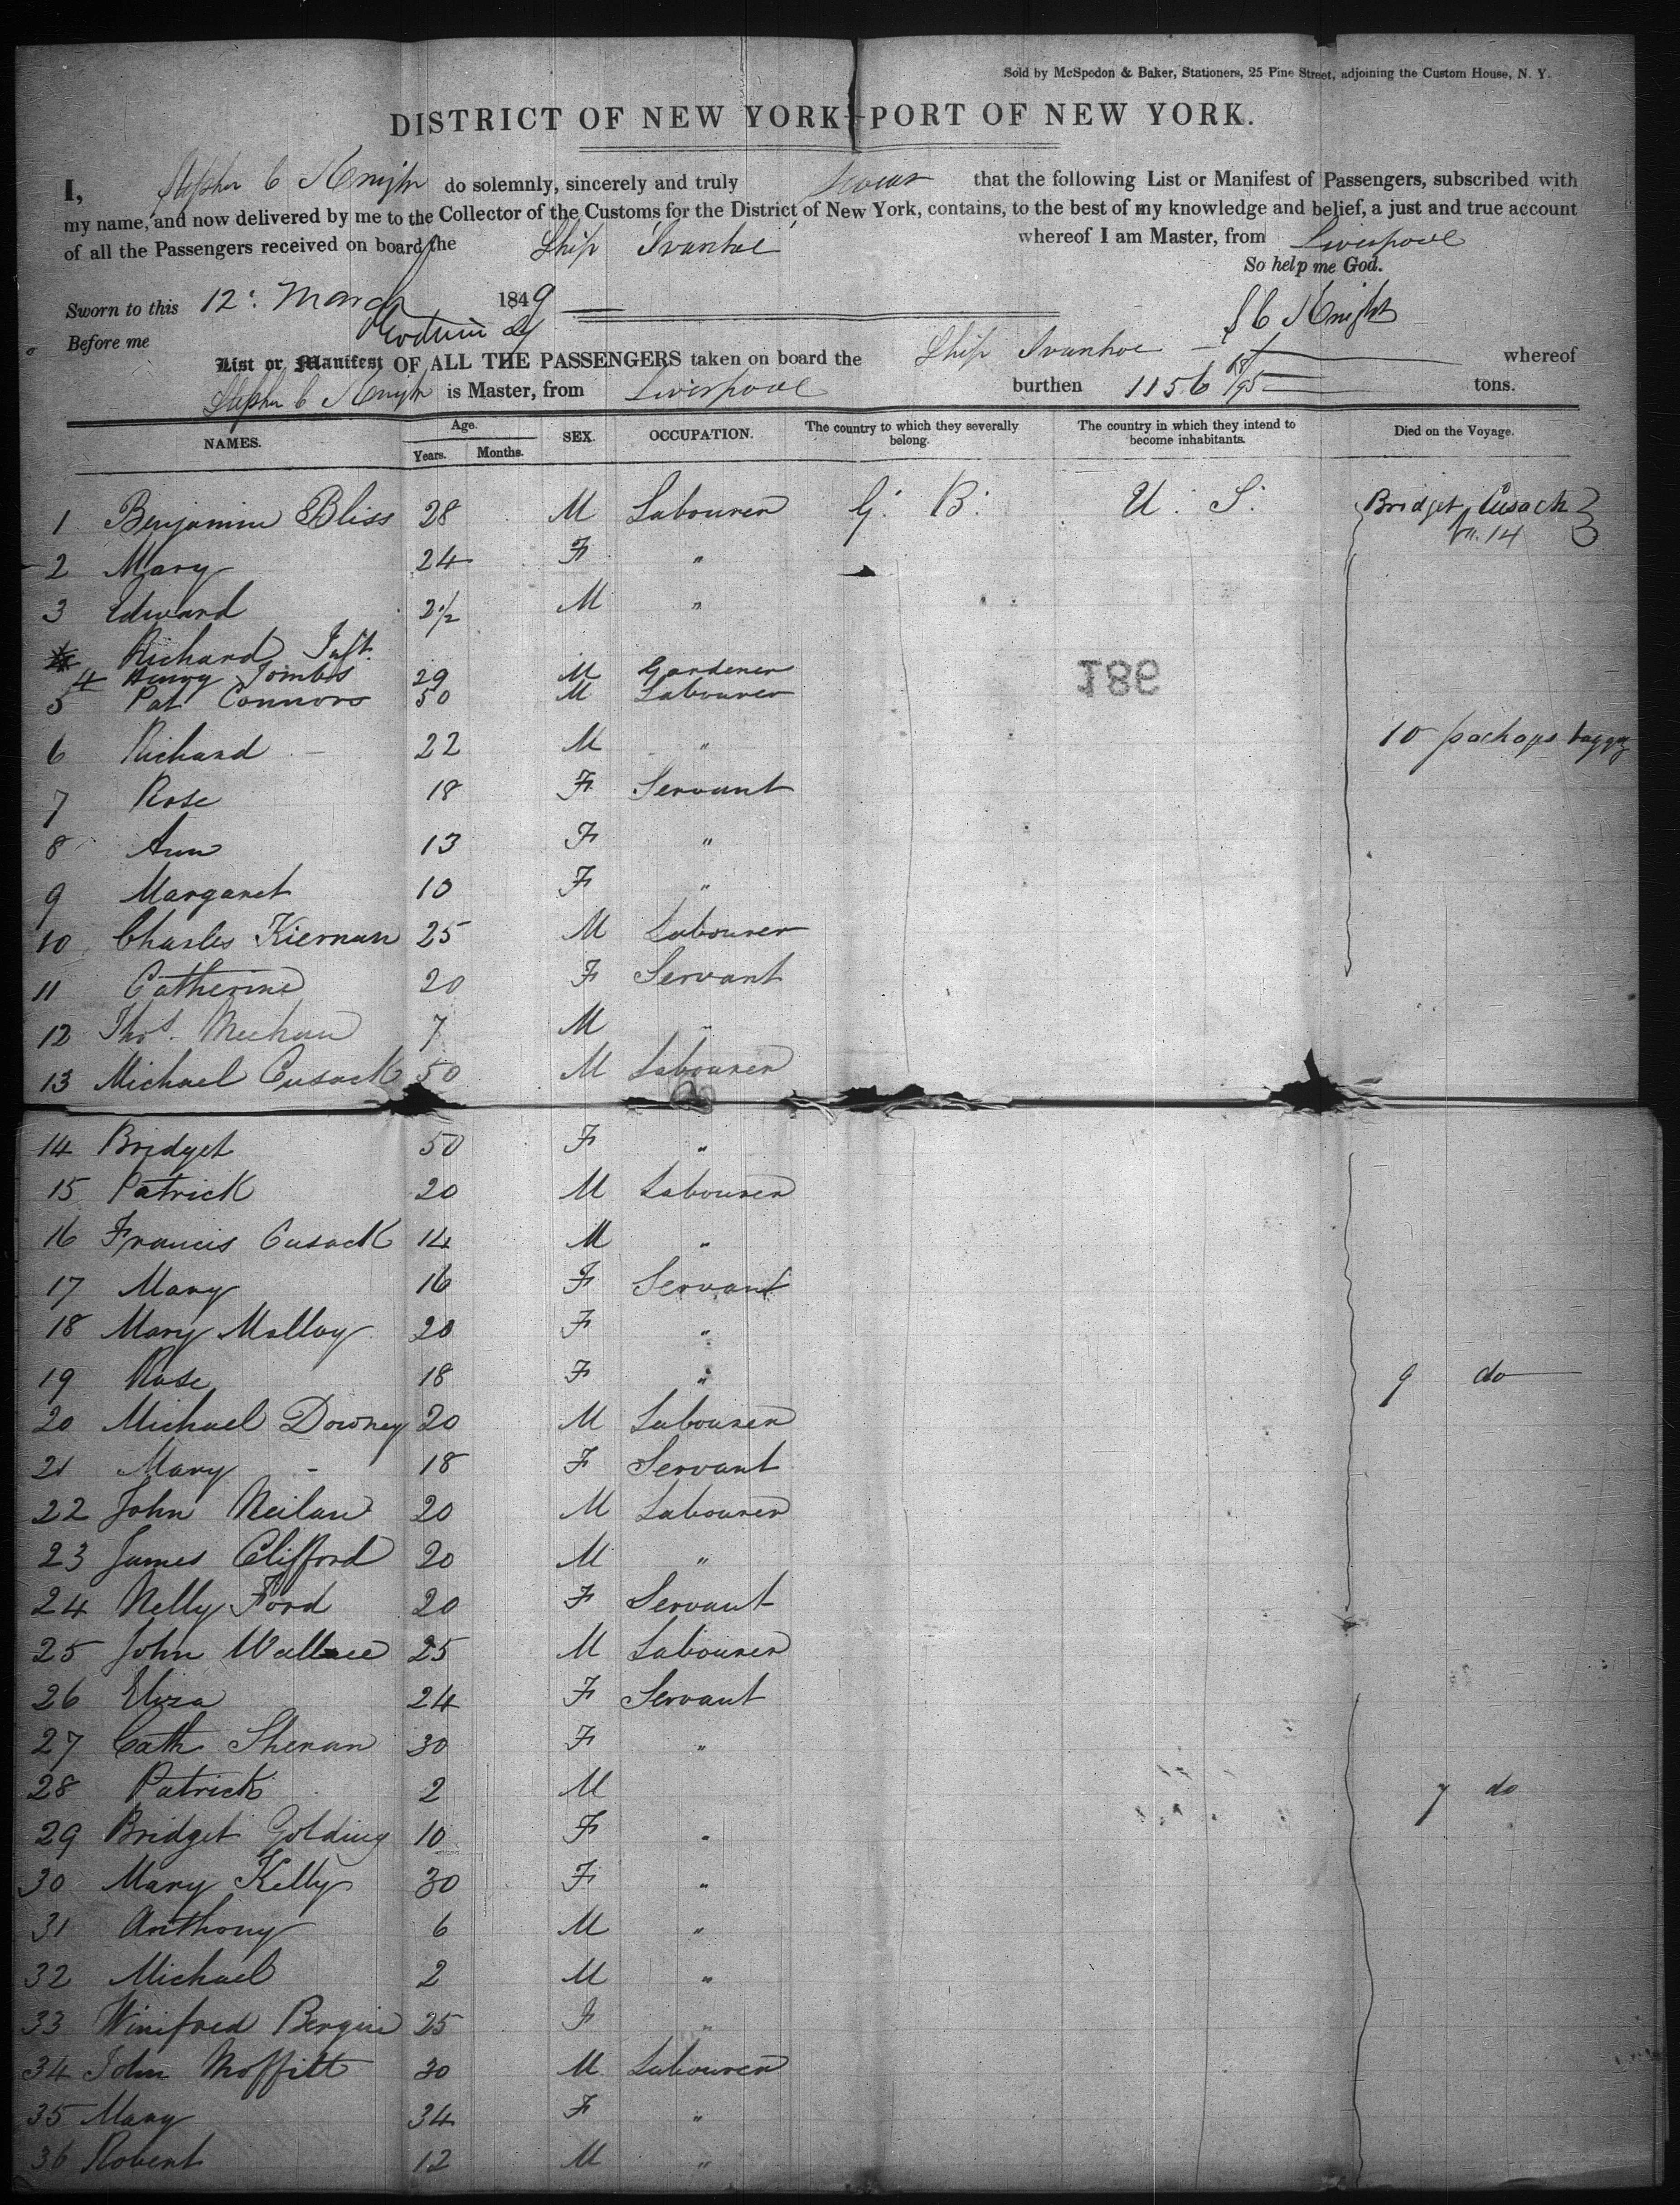 Sold by McSpedon & Baker, Stationers, 25 Pine Street, adjoining the Custom House, N. Y.
DISTRICT OF NEW YORK—PORT OF NEW YORK.
I, Stephen C Knight do solemnly, sincerely and truly swear that the following List or Manifest of Passengers, subscribed with
my name, and now delivered by me to the Collector of the Customs for the District of New York, contains, to the best of my knowledge and belief, a just and true account
of all the Passengers received on board the Ship Ivanhoe whereof I am Master, from Liverpool
So help me God.
Sworn to this 12: March 1849
S C Knight
Before me
List or Manifest OF ALL THE PASSENGERS taken on board the Ship Ivanhoe whereof
Stephen C Knight is Master, from Liverpool burthen 1156 /95 tons.
NAMES. Age. Years. Months. SEX. OCCUPATION. The country to which they severally belong. The country in which they intend to become inhabitants. Died on the Voyage.
1 Benjamin Bliss 28 M Labourer G: B: U. S: Bridget Cusack
No. 14
2 Mary 24 F "
3 Edward 2½ M "
Richard Inft.
4 Henry Tombs 29 M Gardener
186
5 Pat Connors 50 M Labourer
6 Richard – 22 M " 10 packags bagge
7 Rose 18 F Servant
8 Ann 13 F "
9 Margaret 10 F "
10 Charles Kiernan 25 M Labourer
11 Catherine 20 F Servant
12 Thos. Meehan 7 M "
13 Michael Cusack 50 M Labourer
14 Bridget 50 F "
15 Patrick 20 M Labourer
16 Francis Cusack 14 M "
17 Mary 16 F Servant
18 Mary Molloy 20 F "
19 Rose 18 F " 9 do
20 Michael Downey 20 M Labourer
21 Mary - 18 F Servant
22 John Neilan 20 M Labourer
23 James Clifford 20 M "
24 Nelly Ford 20 F Servant
25 John Wallace 25 M Labourer
26 Eliza 24 F Servant
27 Cath Sheran 30 F "
28 Patrick 2 M 7 do
29 Bridget Golding 10 F "
30 Mary Kelly 30 F "
31 Anthony 6 M "
32 Michael 2 M "
33 Winifred Bergin 25 F "
34 John Moffitt 30 M Labourer
35 Mary 34 F "
36 Robert 12 M "